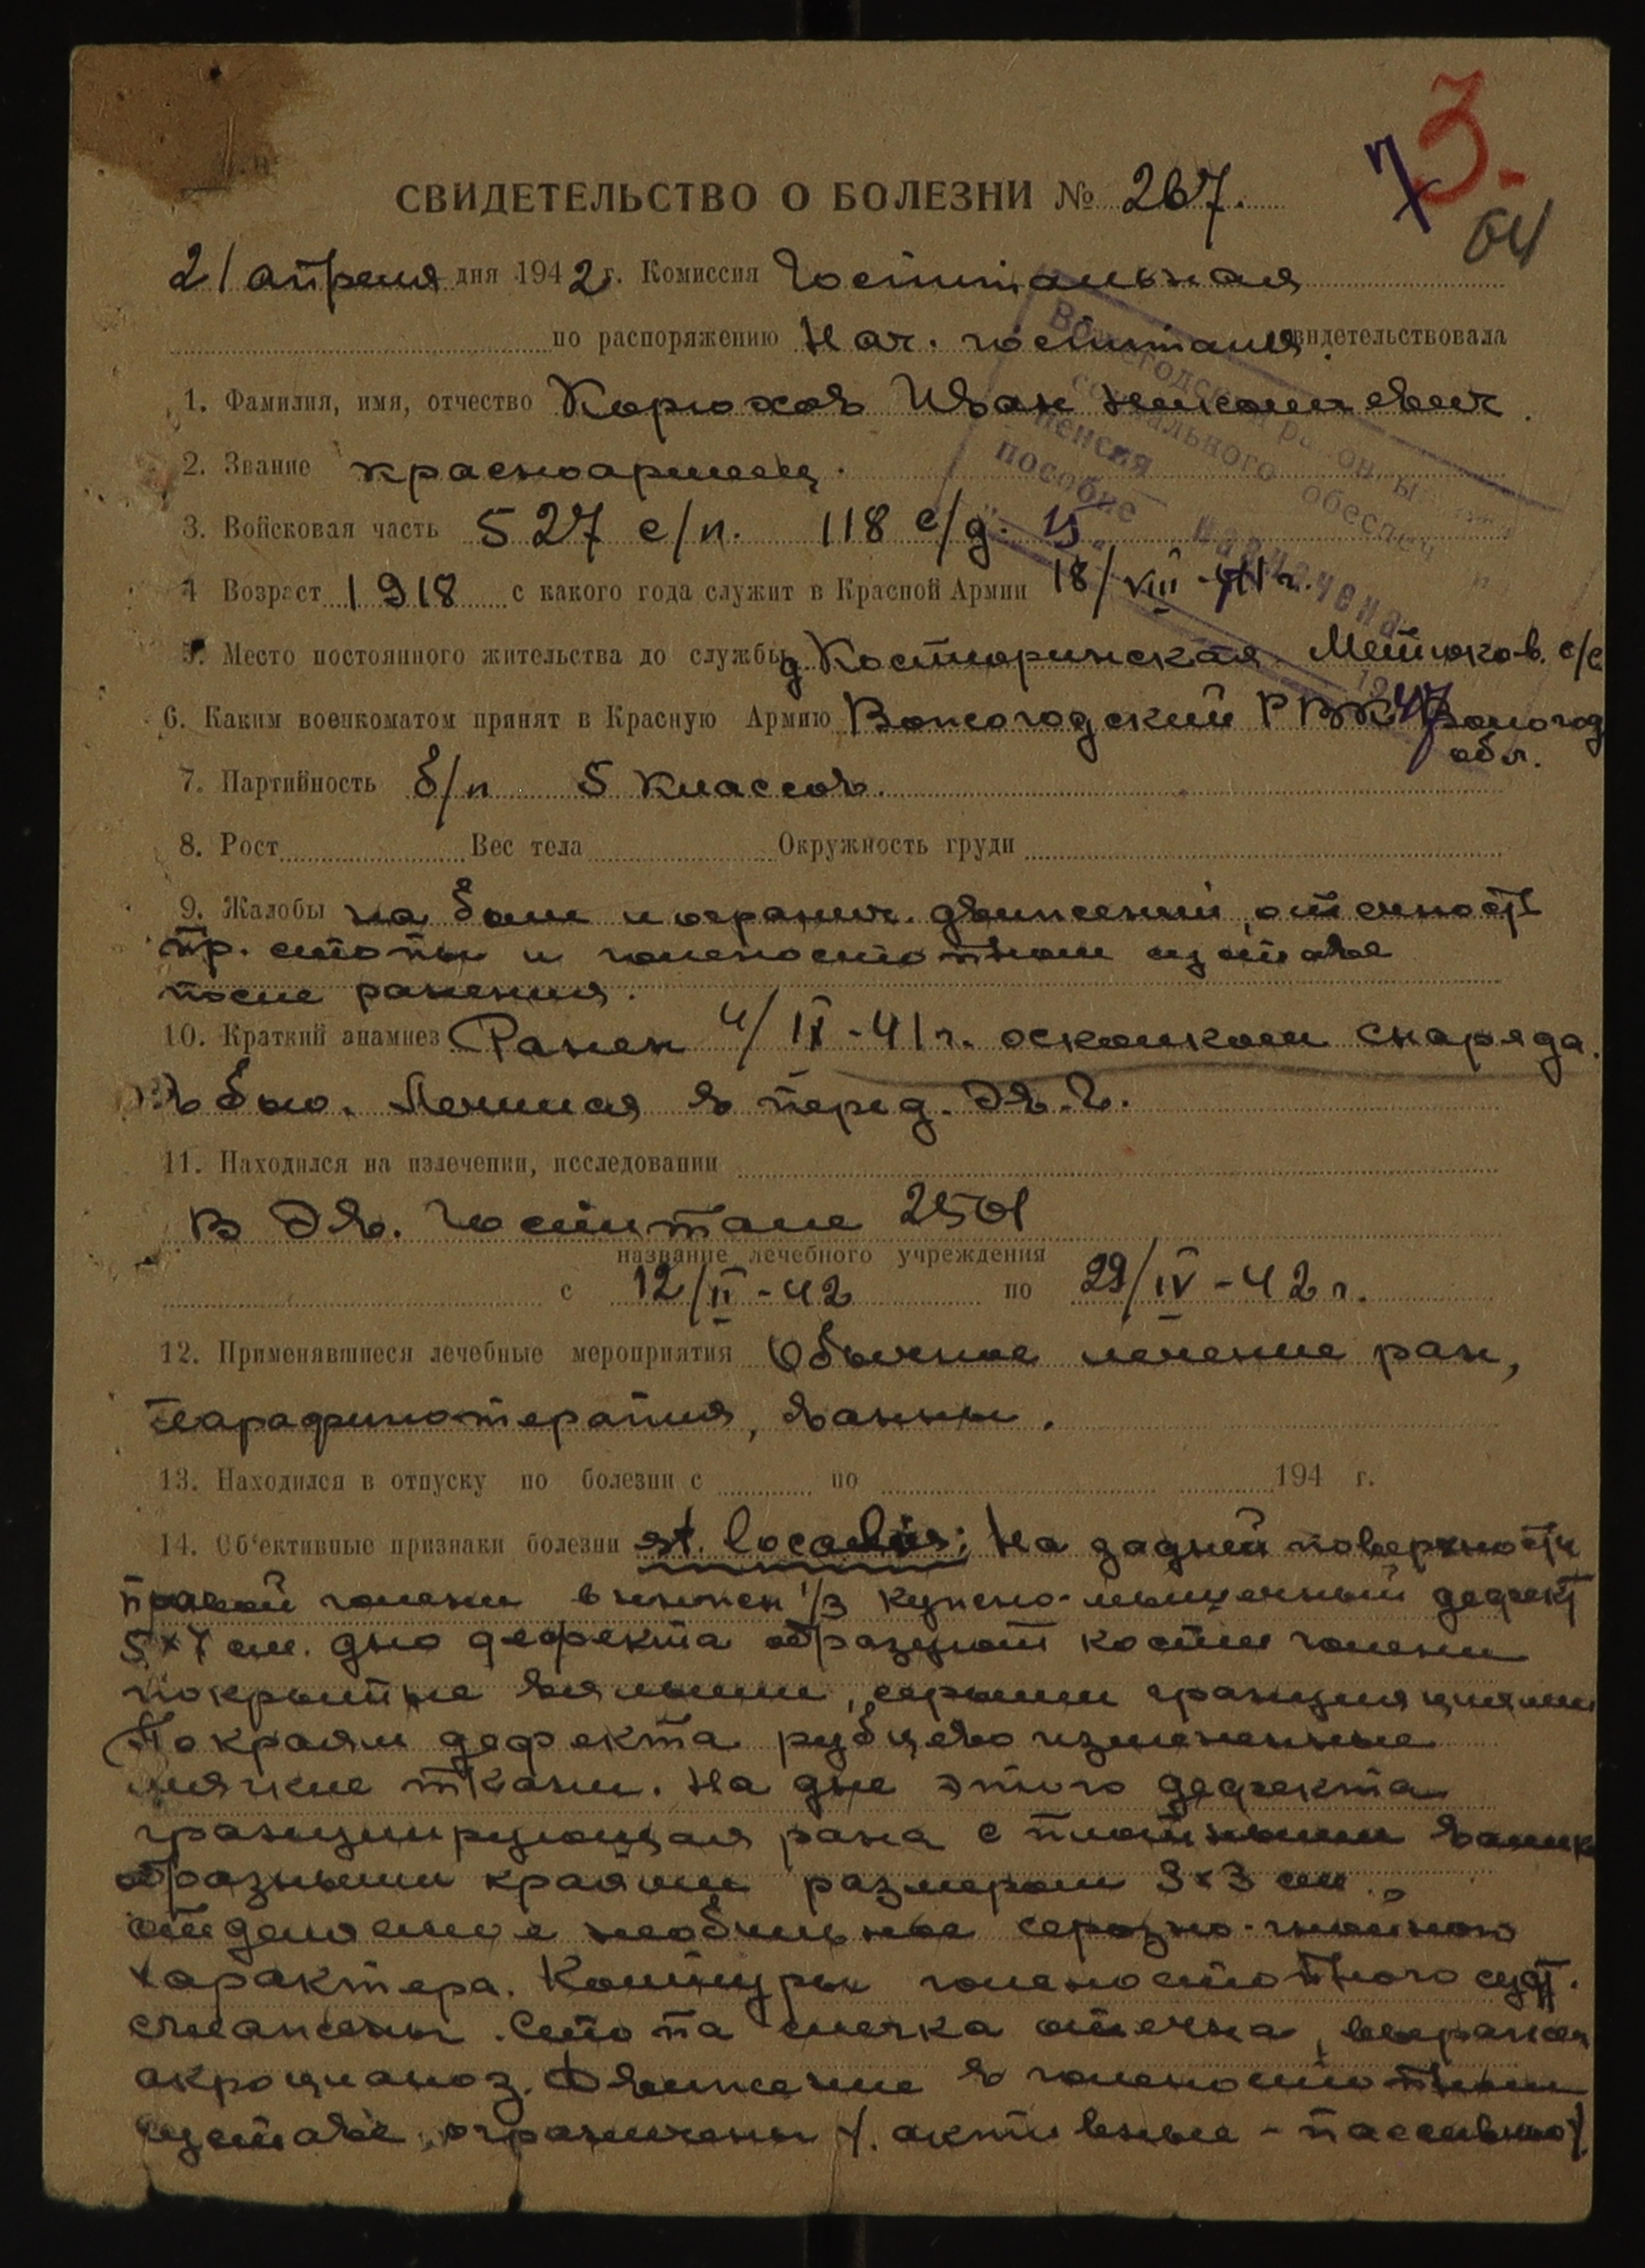 3.
7
64
СВИДЕТЕЛЬСТВО О БОЛЕЗНИ № 267.
21 апреля дня 1942 г. Комиссия Госпитальная
по распоряжению Нач. госпиталя свидетельствовала
1. Фамилия, имя, отчество Корюхов Иван
2. Звание красноармеец.
3. Войсковая часть 527 с/п. 118 с/д.
4 Возраст 1918 с какого года служит в Красной Армии 18/VIII-41 г.
5. Место постоянного жительства до службы д. Костюринская Метюков. с/с
6. Каким военкоматом принят в Красную Армию Вожегодский РВК Вологод
обл.
7. Партийность б/п 5 классов.
8. Рост Вес тела Окружность груди
9. Жалобы на боли и огранич. движений, отечность
пр. стопы и голеностопном суставе
после ранения.
10. Краткий анамнез Ранен 4/IX-41 г. осколком снаряда.
в бою. Лечился в перед. Эв. г.
11. Находился на излечении, исследовании
в Эв. Госпитале 2501
название лечебного учреждения
с 12/II-42 по 29/IV-42 г.
12. Применявшиеся лечебные мероприятия Обычное лечение ран,
парафинотерапия, ванны.
13. Находился в отпуску по болезни с по 194 г.
14. Об'ективные признаки болезни st. localis; На задней поверхности
правой голени в нижн 1/3 кожно-мышечный дефект
5×7 см. дно дефекта образуют кости голени
покрытые вялыми, серыми грануляциями
По краям дефекта рубцово измененные
мягкие ткани. На дне этого дефекта
гранулирующая рана с плотными валик
образными краями размером 3×3 см.,
отделяемое необильное серозно-гнойного
характера. Контуры голеностопного суст.
сглажены. Стопа слегка отечна, выражен
акроцианоз. Движение в голеностопном
суставе ограничены /. активные - пассивно/.
Вожегодский район
социального обеспеч
пенсия
пособие назначена
15
1947